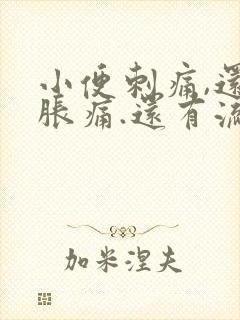 小便刺痛,還
脹痛.還有流
加米涅夫